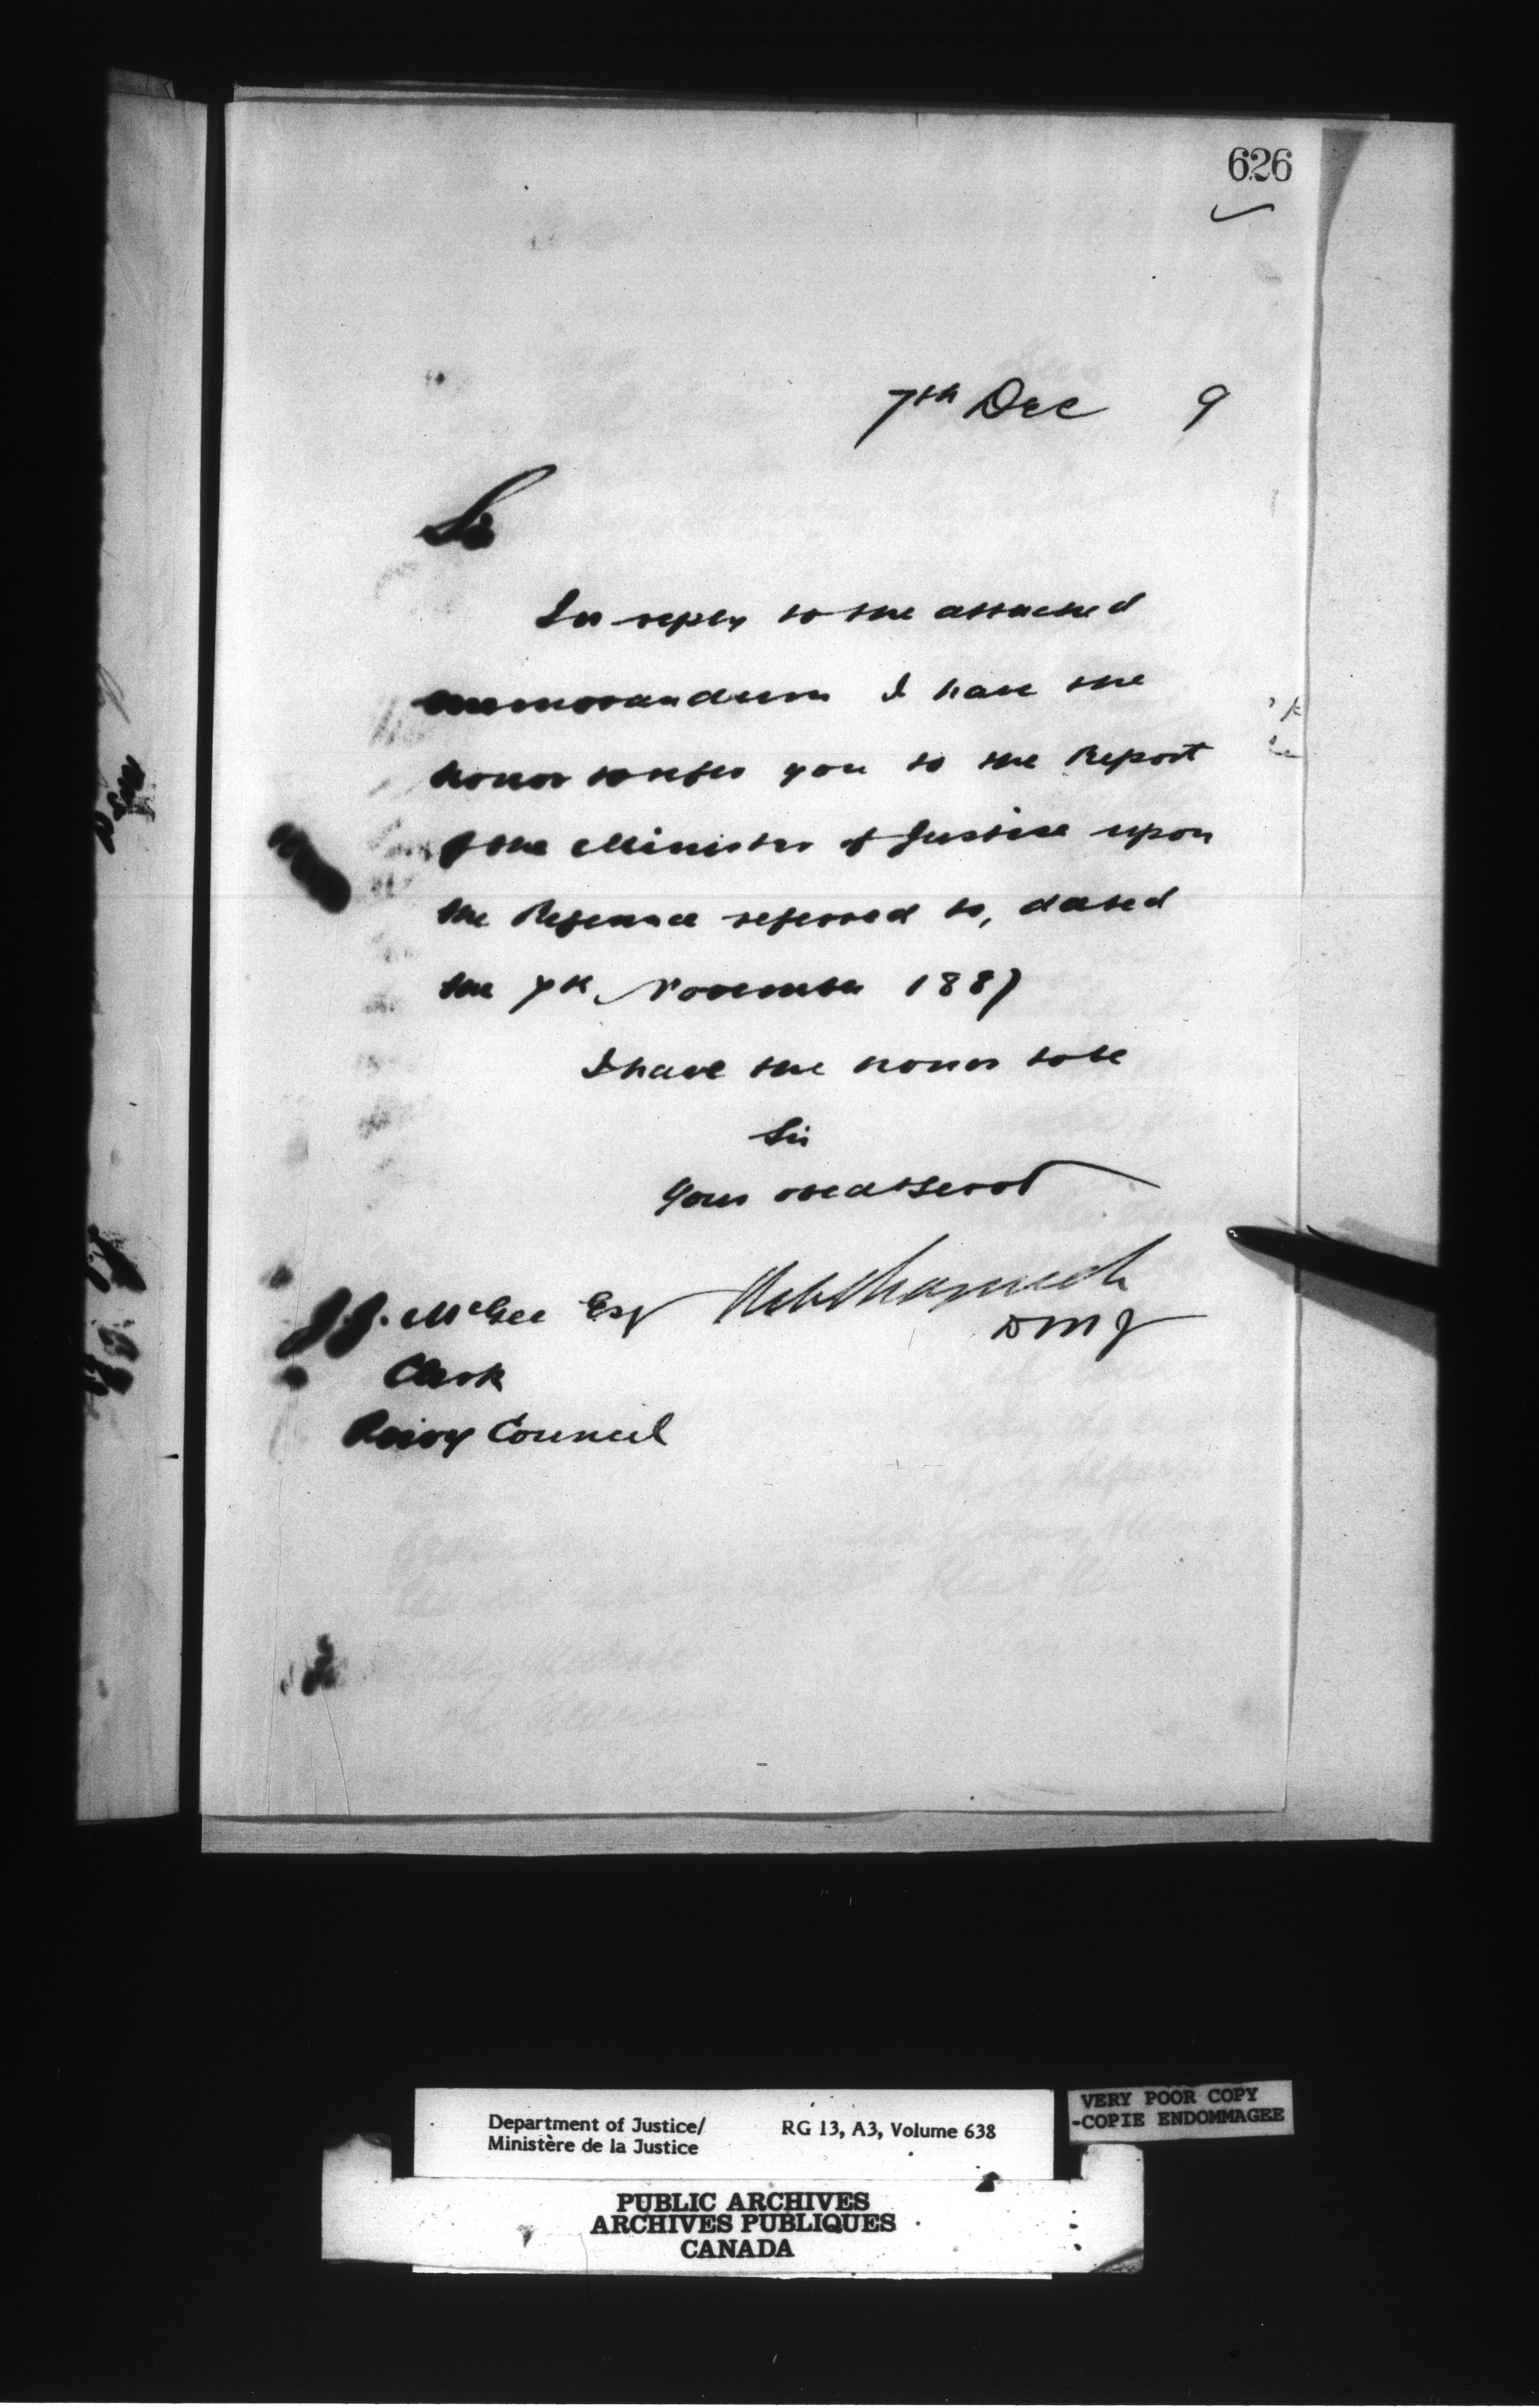 626
7th Dec 9
Sir
In reply to the attached
memorandum I have the
honor to refer you to the Report
of the Minister of Justice upon
the Reference referred to, dated
the 7th November 1887
I have the honor to be
Sir
Your obedt servt
DMJ
J.J. McGee Esq
Clerk
Privy Council
Department of Justice/
Ministère de la Justice
RG 13, A3, Volume 638
VERY POOR COPY
-COPIE ENDOMMAGEE
PUBLIC ARCHIVES
ARCHIVES PUBLIQUES
CANADA